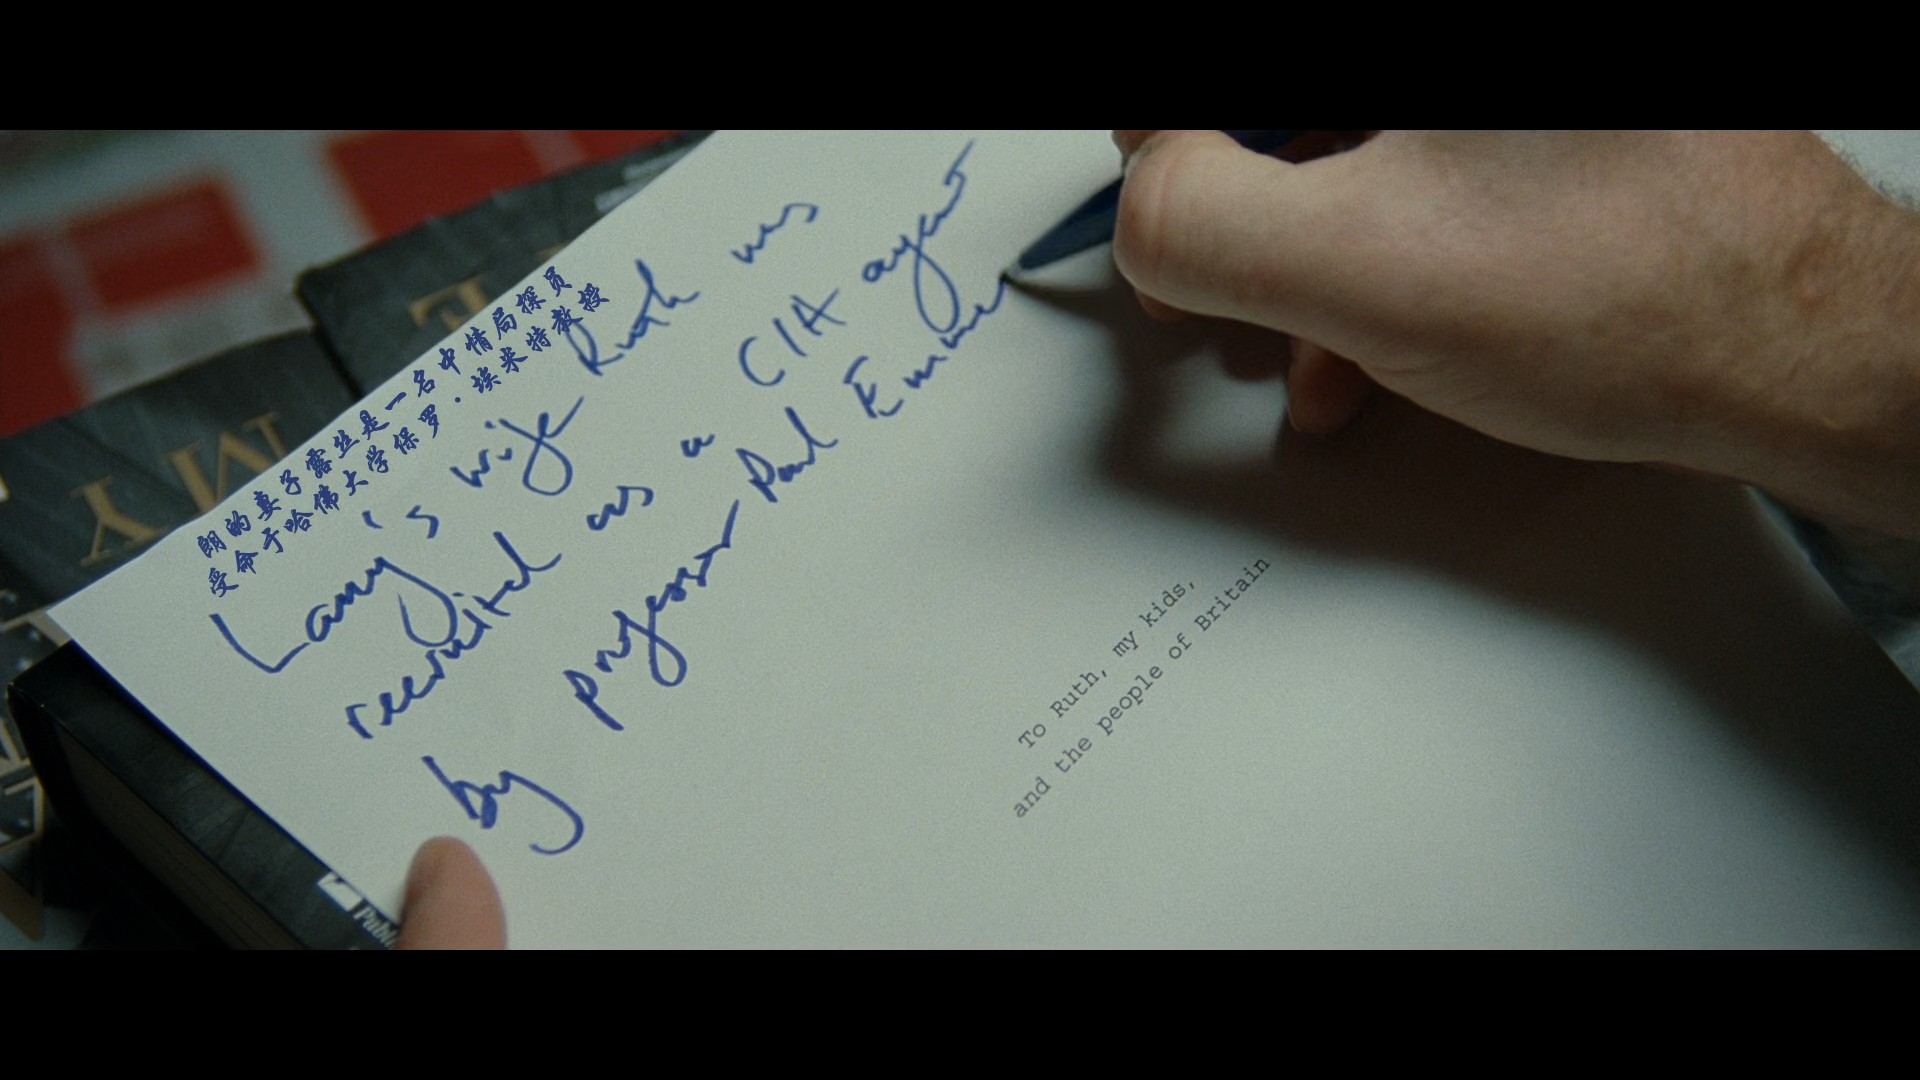 朗的真子露丝是一名中情局探员
受命于哈佛大学保罗·埃米特教授
Lang's wife Ruth was
recruited as a CIA agent
by professor Paul Emme
To Ruth, my kids,
and the people of Britain
MY
Publi